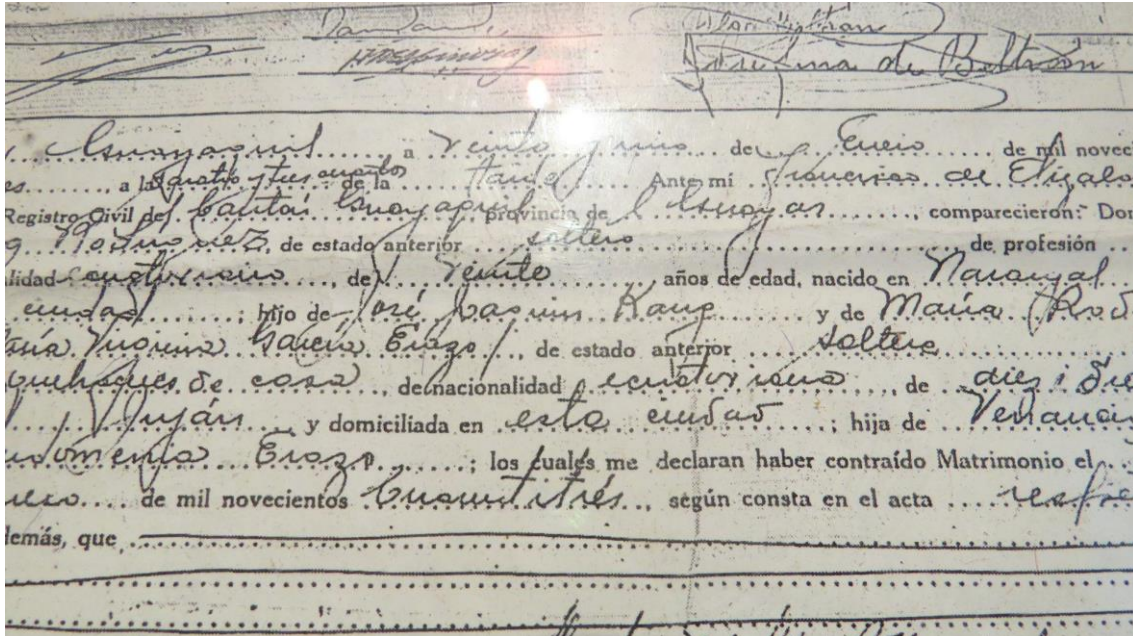 Josefina de Beltrán
Guayaquil a veinte y uno de Enero de mil noveci
a la cuatro y tres cuartos de la tarde Ante mí Francisco de Elizal
Registro Civil del Cantón Guayaquil provincia de l Guayas, comparecieron: Don
Rodríguez, de estado anterior soltero de profesión
lidad ecuatoriano, de veinte años de edad, nacido en Naranjal
ciudad; hijo de José Joaquín Kang y de María Rod
aría Virginia García Erazo, de estado anterior soltera
quehaceres de casa, de nacionalidad ecuatoriana, de diez i
Juján y domiciliada en esta ciudad; hija de Venancio
Erazo; los cuales me declaran haber contraído Matrimonio el
de mil novecientos cuarentitrés, según consta en el acta
demás, que